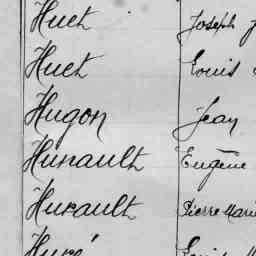 Huet Joseph
Huet Louis
Hugon Jean
Hunault Eugène
Hurault Pierre Marie
Huré